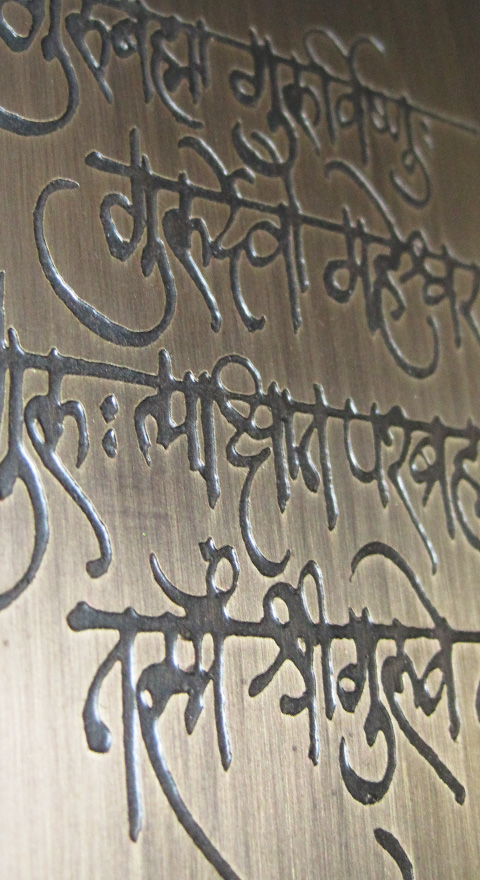 गुरुब्रह्मा गुरुर्विष्णुः
गुरुर्देवो महेश्वर
गुरुः साक्षात परब्रह
तस्मै श्रीगुरुवे